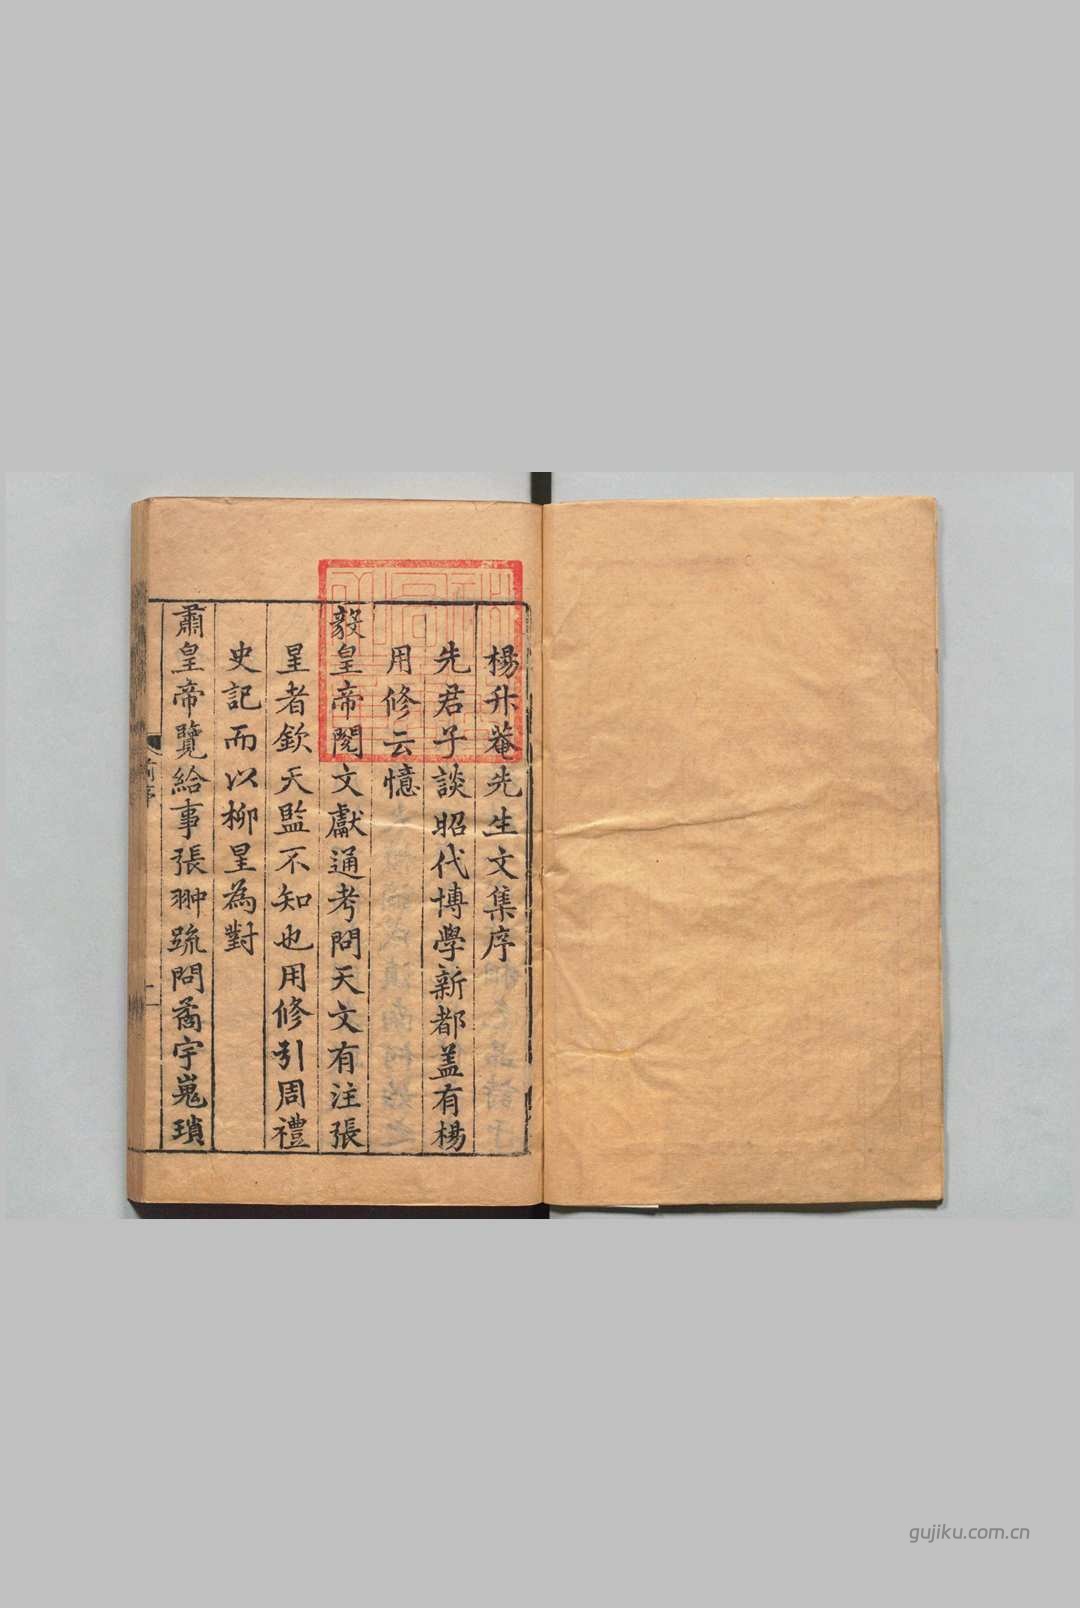 楊升菴先生文集序
先君子談昭代博學新都盖有楊
用修云憶
毅皇帝閱文獻通考問天文有注張
星者欽天監不知也用修引周禮
史記而以柳星為對
肅皇帝覽給事張翀疏問矞宇嵬瑣
前序
一
gujiku.com.cn